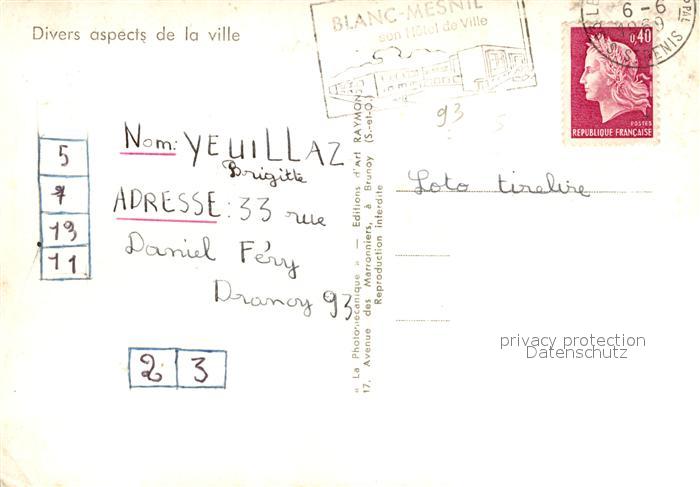 Divers aspects de la ville
BLANC-MESNIL
son Hôtel de Ville
6-6
1969
0,40
POSTES
REPUBLIQUE FRANÇAISE
93
5
5
7
19
11
Nom: YEUILLAZ
Brigitte
ADRESSE: 33 rue
Daniel Féry
Drancy 93
2 3
« La Photomécanique » — Editions d'Art RAYMON
17, Avenue des Marronniers, à Brunoy (S.-et-O.)
Reproduction interdite
Loto tirelire
privacy protection
Datenschutz